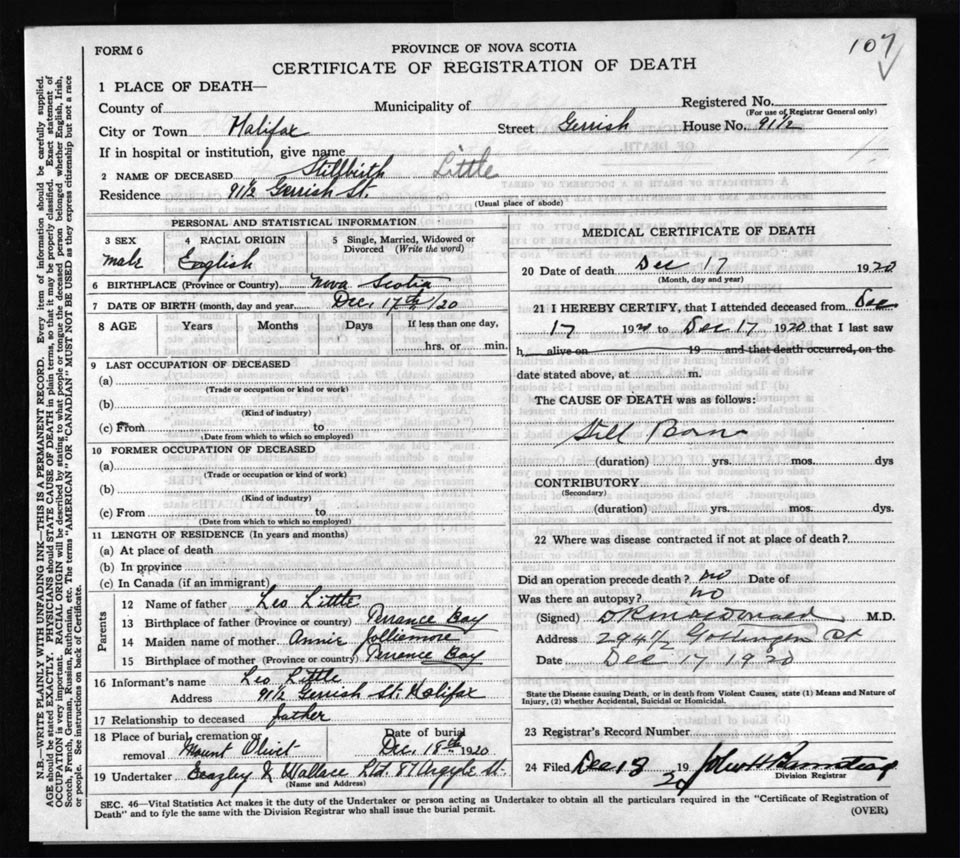 FORM 6
PROVINCE OF NOVA SCOTIA
107
CERTIFICATE OF REGISTRATION OF DEATH
1 PLACE OF DEATH—
County of Municipality of Registered No.
(For use of Registrar General only)
City or Town Halifax Street Gerrish House No. 91½
If in hospital or institution, give name
2 NAME OF DECEASED Stillbirth Little
Residence 91½ Gerrish St.
(Usual place of abode)
PERSONAL AND STATISTICAL INFORMATION
3 SEX male
4 RACIAL ORIGIN English
5 Single, Married, Widowed or Divorced (Write the word)
6 BIRTHPLACE (Province or Country) Nova Scotia
7 DATE OF BIRTH (month, day and year) Dec. 17th/20
8 AGE Years Months Days If less than one day,
hrs. or min.
9 LAST OCCUPATION OF DECEASED
(a)
(Trade or occupation or kind or work)
(b)
(Kind of industry)
(c) From to
(Date from which to which so employed)
10 FORMER OCCUPATION OF DECEASED
(a)
(Trade or occupation or kind of work)
(b)
(Kind of industry)
(c) From to
(Date from which to which so employed)
11 LENGTH OF RESIDENCE (In years and months)
(a) At place of death
(b) In province
(c) In Canada (if an immigrant)
Parents
12 Name of father Leo Little
13 Birthplace of father (Province or country) Terrance Bay
14 Maiden name of mother Annie Jolliemore
15 Birthplace of mother (Province or country) Terrence Bay
16 Informant's name Leo Little
Address 91½ Gerrish St. Halifax
17 Relationship to deceased father
18 Place of burial, cremation or removal Mount Olivet
Date of burial Dec. 18th 1920
19 Undertaker Snazley & Wallace Ltd. 87 Argyle St.
(Name and Address)
MEDICAL CERTIFICATE OF DEATH
20 Date of death Dec 17 1920
(Month, day and year)
21 I HEREBY CERTIFY, that I attended deceased from Dec
17 1920 to Dec 17 1920 that I last saw
h alive on 19 and that death occurred, on the
date stated above, at m.
The CAUSE OF DEATH was as follows:
Still Born
(duration) yrs. mos. dys
CONTRIBUTORY
(Secondary)
(duration) yrs. mos. dys.
22 Where was disease contracted if not at place of death?
Did an operation precede death? no Date of
Was there an autopsy? no
(Signed) D R MacDonald M.D.
Address 294½ Gottingen St
Date Dec 17 1920
State the Disease causing Death, or in death from Violent Causes, state (1) Means and Nature of
Injury, (2) whether Accidental, Suicidal or Homicidal.
23 Registrar's Record Number
24 Filed Dec 18 1920
Division Registrar
SEC. 46—Vital Statistics Act makes it the duty of the Undertaker or person acting as Undertaker to obtain all the particulars required in the "Certificate of Registration of
Death" and to fyle the same with the Division Registrar who shall issue the burial permit.
(OVER)
N.B.—WRITE PLAINLY WITH UNFADING INK—THIS IS A PERMANENT RECORD. Every item of information should be carefully supplied.
AGE should be stated EXACTLY. PHYSICIANS should STATE CAUSE OF DEATH in plain terms, so that it may be properly classified. Exact statement of
OCCUPATION is very important. RACIAL ORIGIN will be described by stating to what people or tongue the deceased person belonged whether English, Irish,
Scotch, French, German, Russian, Ruthenian, etc. The terms "AMERICAN" OR "CANADIAN" MUST NOT BE USED as they express citizenship but not a race
or people. See instructions on back of Certificate.